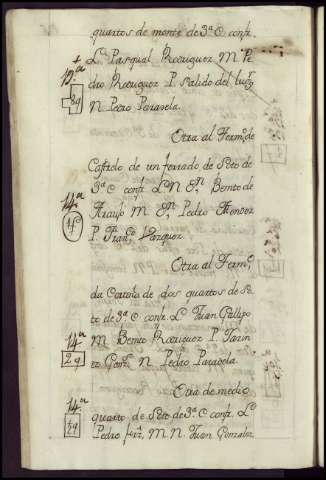 quartos de monte de 3ª C confr.
L. Pasqual Rodriguez M. Pe
dro Rodriguez P. salido del lugr.
N. Pedro Paradela.
13.ª
Otra al Term.º de
Castrelo de un ferrado de Soto de
3ª C confr. L. N. Benito de
Araujo M. Pedro
P. Fran.co Vazquez.
14.ª
1f
Otra al Term.º
da Coruña de dos quartos de So
to de 3ª C confr. L. Juan Gallego
M. Benito Rodriguez P.
N. Pedro Paradela.
14.ª
2q
Otra de medio
quarto de Soto de 3ª C confr. L.
Pedro frz. M. N. Juan Gonzalez.
14.ª
½q